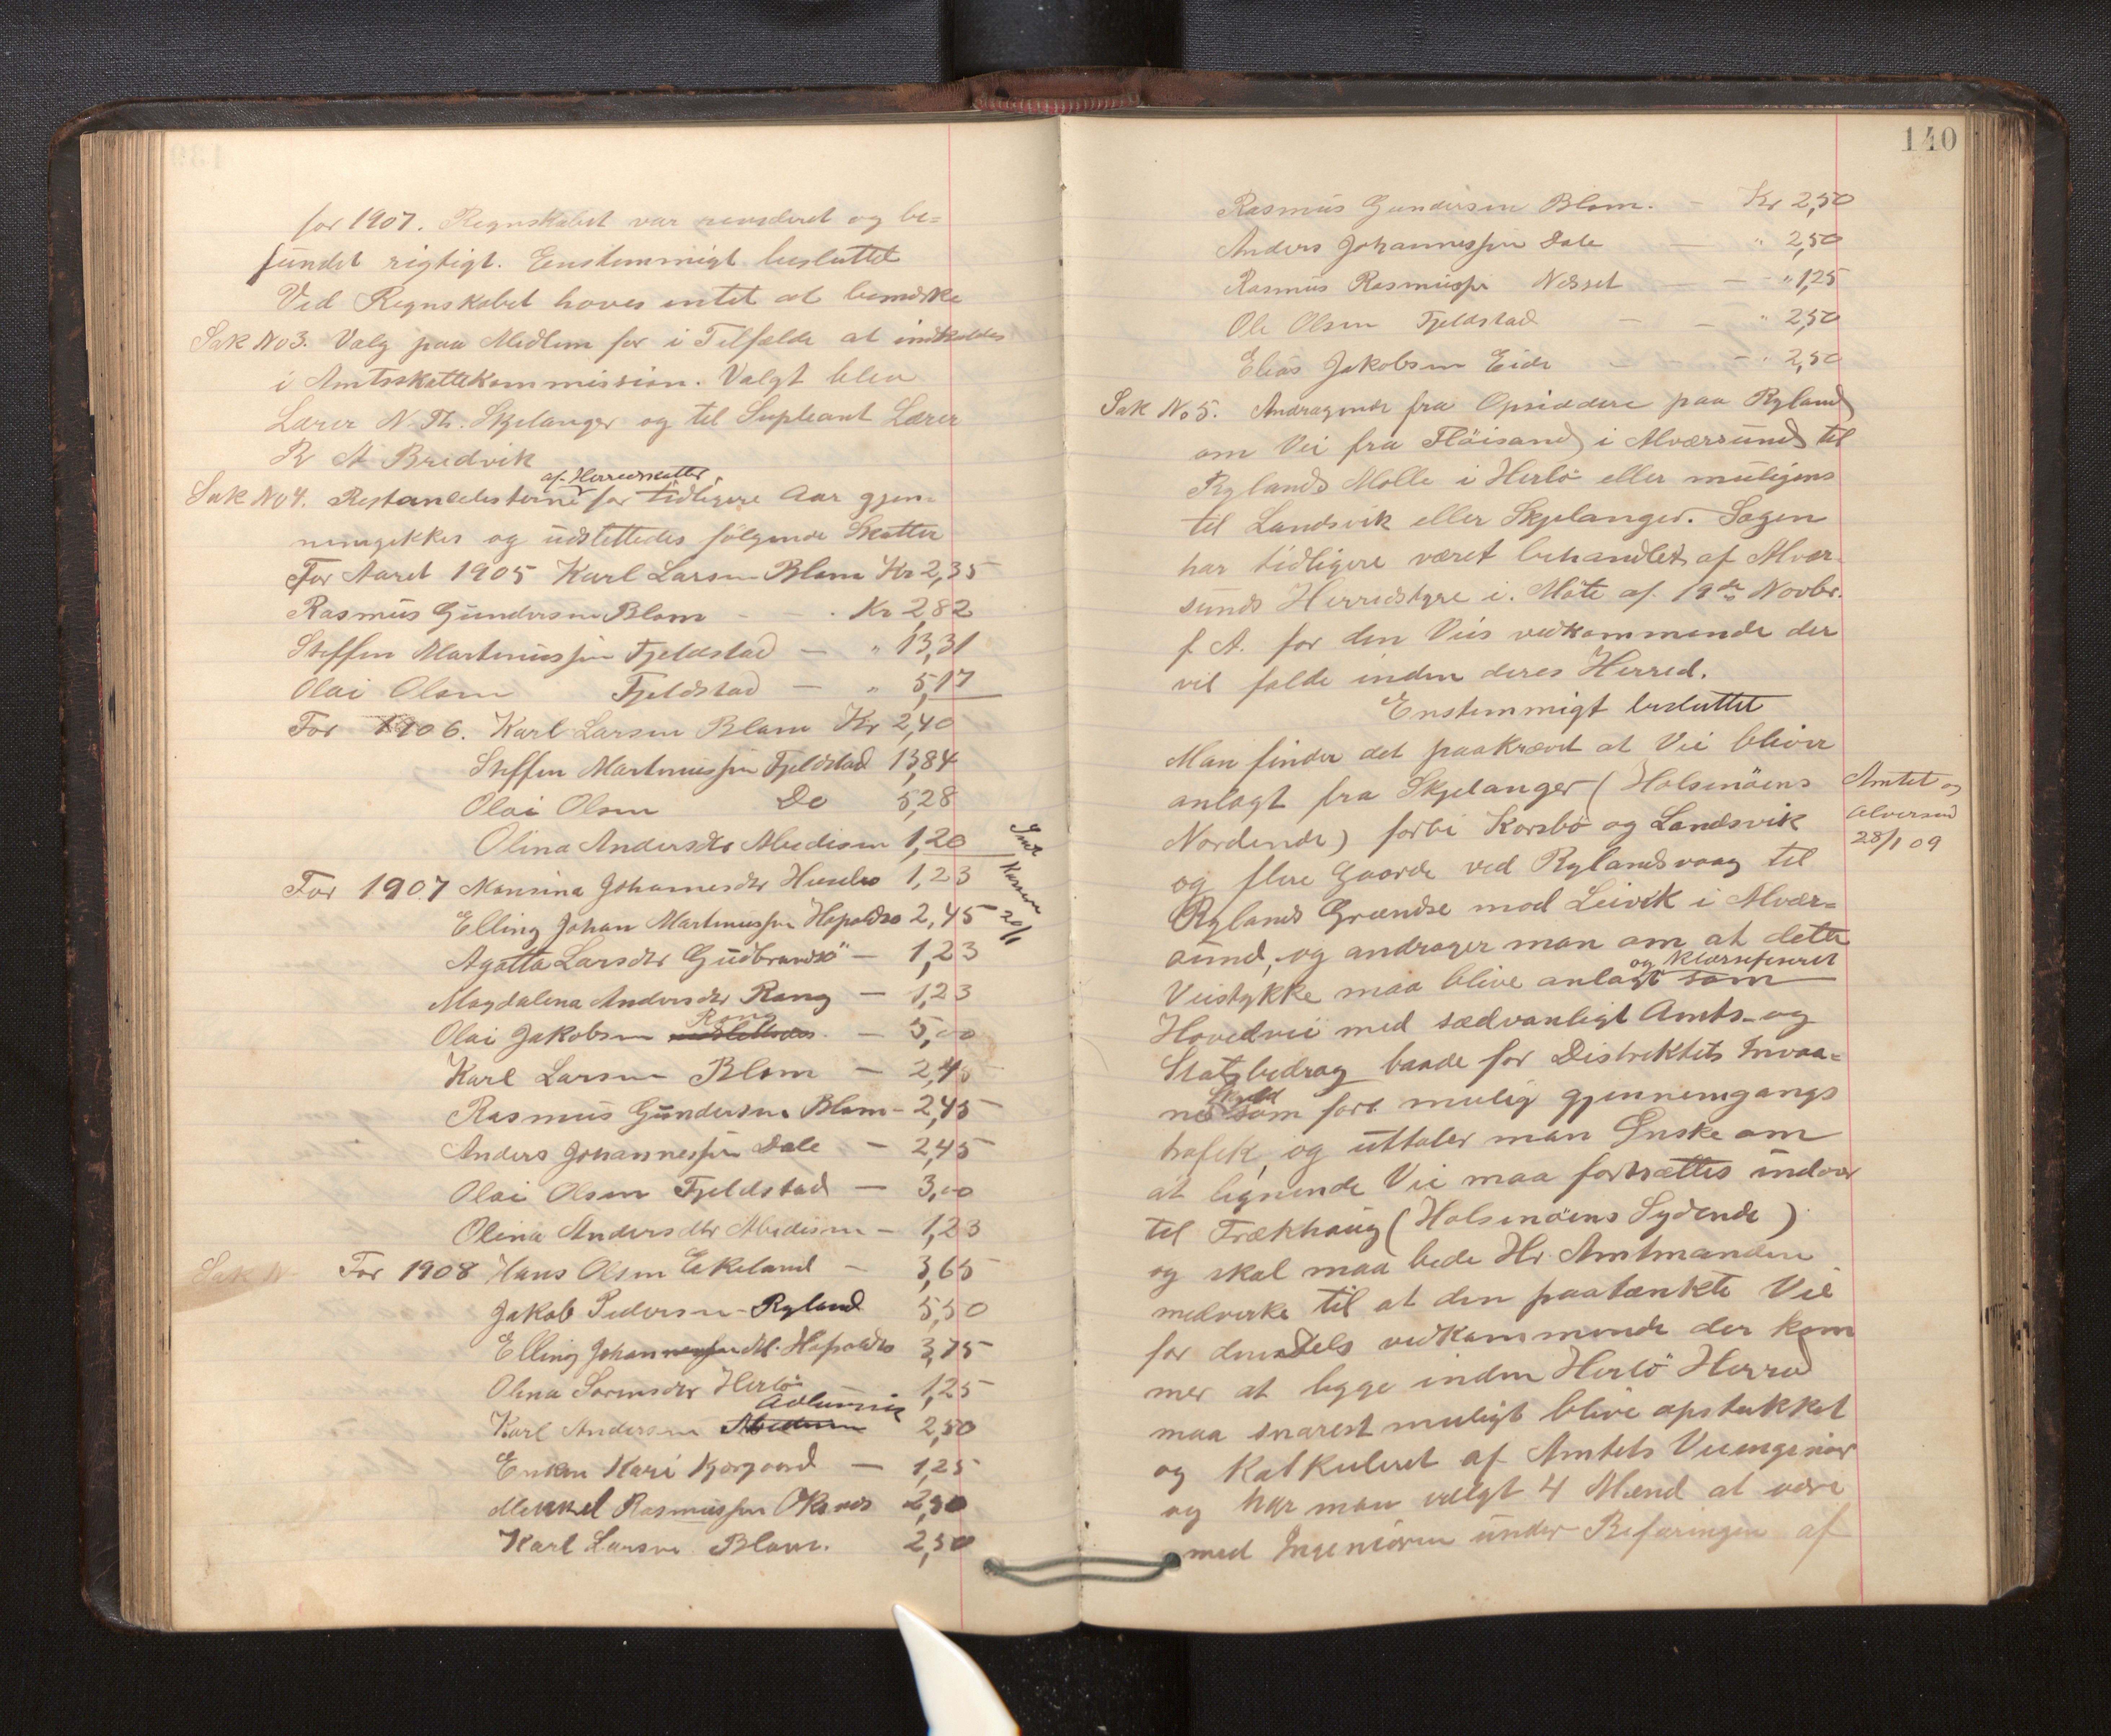 for 1907. Regnskabet var revideret og be=
fundet rigtigt. Enstemmigt besluttet
Ved Regnskabet haves intet at bemærke
Sak No 3. Valg paa Medlem for i Tilfælde at indkaldes
i Amtsskattekommission. Valgt blev
Lærer N. Th. Skjelanger og til Supleant Lærer
R A Bredvik
af Herredsskatter
Sak No 4. Restancelisterne for tidligere Aar gjen-
nemgikkes og udslettedes følgende Skatter
For Aaret 1905 Karl Larsen Blom Kr 2,35
Rasmus Gundersen Blom - . Kr 2,82
Steffen Martinussen Fjeldstad — " 13,31
Olai Olsen Fjeldstad — " 5,17
For 1906. Karl Larsen Blom Kr 2,40
Steffen Martinussen Fjeldstad 13,84
Olai Olsen Do 5,28
Olina Andersdtr Abedisen 1,20
For 1907 Monsina Johannesdtr Husebø 1,23
Elling Johan Martinussen Hopoldsø 2,45
Agatta Larsdtr Gudbrandsö — 1,23
Magdalena Andersdtr Rong — 1,23
Rong
Olai Jakobsen — 5,00
Karl Larsen Blom — 2,45
Rasmus Gundersen Blom - 2,45
Anders Johannessen Dale — 2,45
Olai Olsen Fjeldstad — 3,00
Olina Andersdtr Abedisen — 1,23
Sak N
For 1908 Hans Olsen Eikeland — 3,65
Jakob Pedersen Ryland 5,50
Elling Johannessen M. Hopoldsø 3,75
Olina Sørensdtr Herlö — 1,25
Karl Andersen Abedisen 2,50
Enken Kari Kjærgaard — 1,25
Mikkel Rasmussen Oksnes 2,50
Karl Larsen Blom. 2,50
20/1
140
Rasmus Gundersen Blom. - Kr 2,50
Anders Johannessen Dale — " 2,50
Rasmus Rasmussen Nesset — - " 1,25
Ole Olsen Fjeldstad - - " 2,50
Elias Jakobsen Eide - - " 2,50
Sak No 5. Andragende fra Opsiddere paa Ryland
om Vei fra Flöisand i Alværsund til
Rylands Molle i Herlö eller muligens
til Landsvik eller Skjelanger. Sagen
har tidligere været behandlet af Alvær-
sunds Herredstyre i. Möte af 19de Novbr.
f. A. for den Veis vedkommende der
vil falde inden deres Herred.
Enstemmigt besluttet
Man finder det paakrævet at Vei bliver
anlagt fra Skjelanger (Holsenöens
Nordende) forbi Korsbö og Landsvik
og flere Gaarde ved Rylandsvaag til
Rylands Grændse mod Leivik i Alvær=
sund, og andrager man om at dette
og klassificeret
Veistykke maa blive anlagt som
Hovedvei med sædvanligt Amts- og
Statsbedrag baade for Distriktets Invaa=
nere som for mulig gjennemgangs
trafik, og uttaler man Ønske om
at lignende Vei maa fortsættes indover
til Frækhaug (Holsenöens Sydende)
og skal maa bede Hr. Amtmanden
medvirke til at den paatænkte Vei
for den Dels vedkommende der kom
mer at ligge inden Herlö Herred
maa snarest muligt blive opstukket
og kalkuleret af Amtets Veiingeniør
og har man valgt 4 Mænd at være
med Ingeniøren under Befaringen af
Amtet og
Alversund
28/1 09